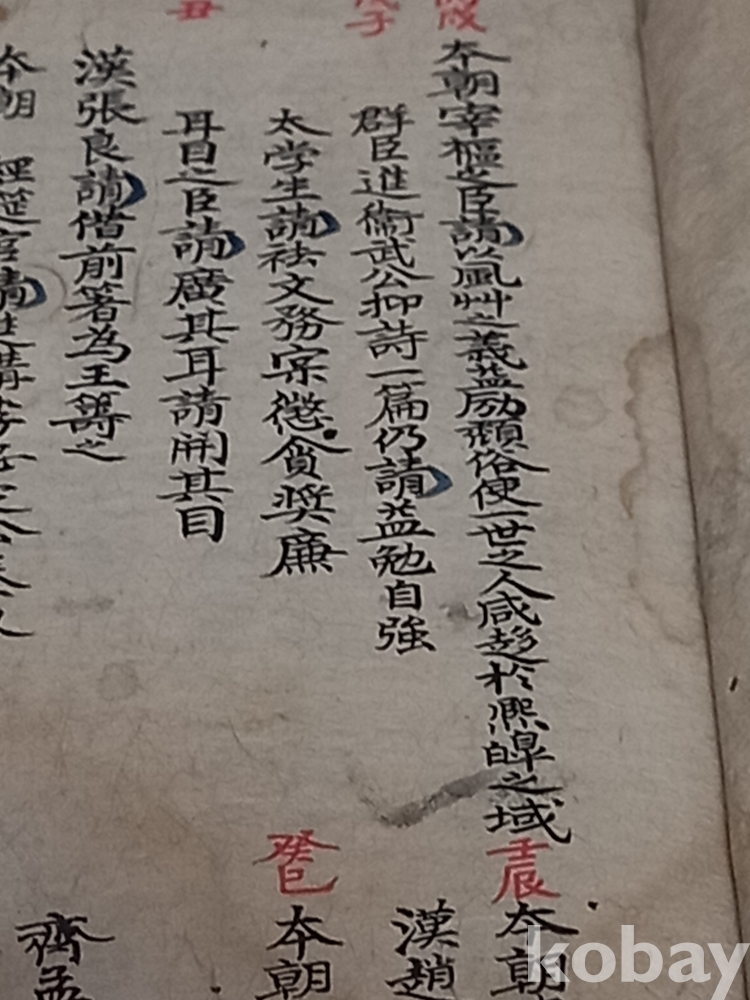 戊
本朝宰樞之臣請以風艸之義益励頽俗使一世之人咸趍於熈皡之域
壬辰
本朝
漢趙
子
群臣進衛武公抑詩一篇仍請益勉自強
太学生請祛文務宗懲貪奨廉
癸巳
本朝
丑
耳目之臣請廣其耳請開其目
漢張良請借前箸為王籌之
齊孟
本朝 經筵官請進講
kobay